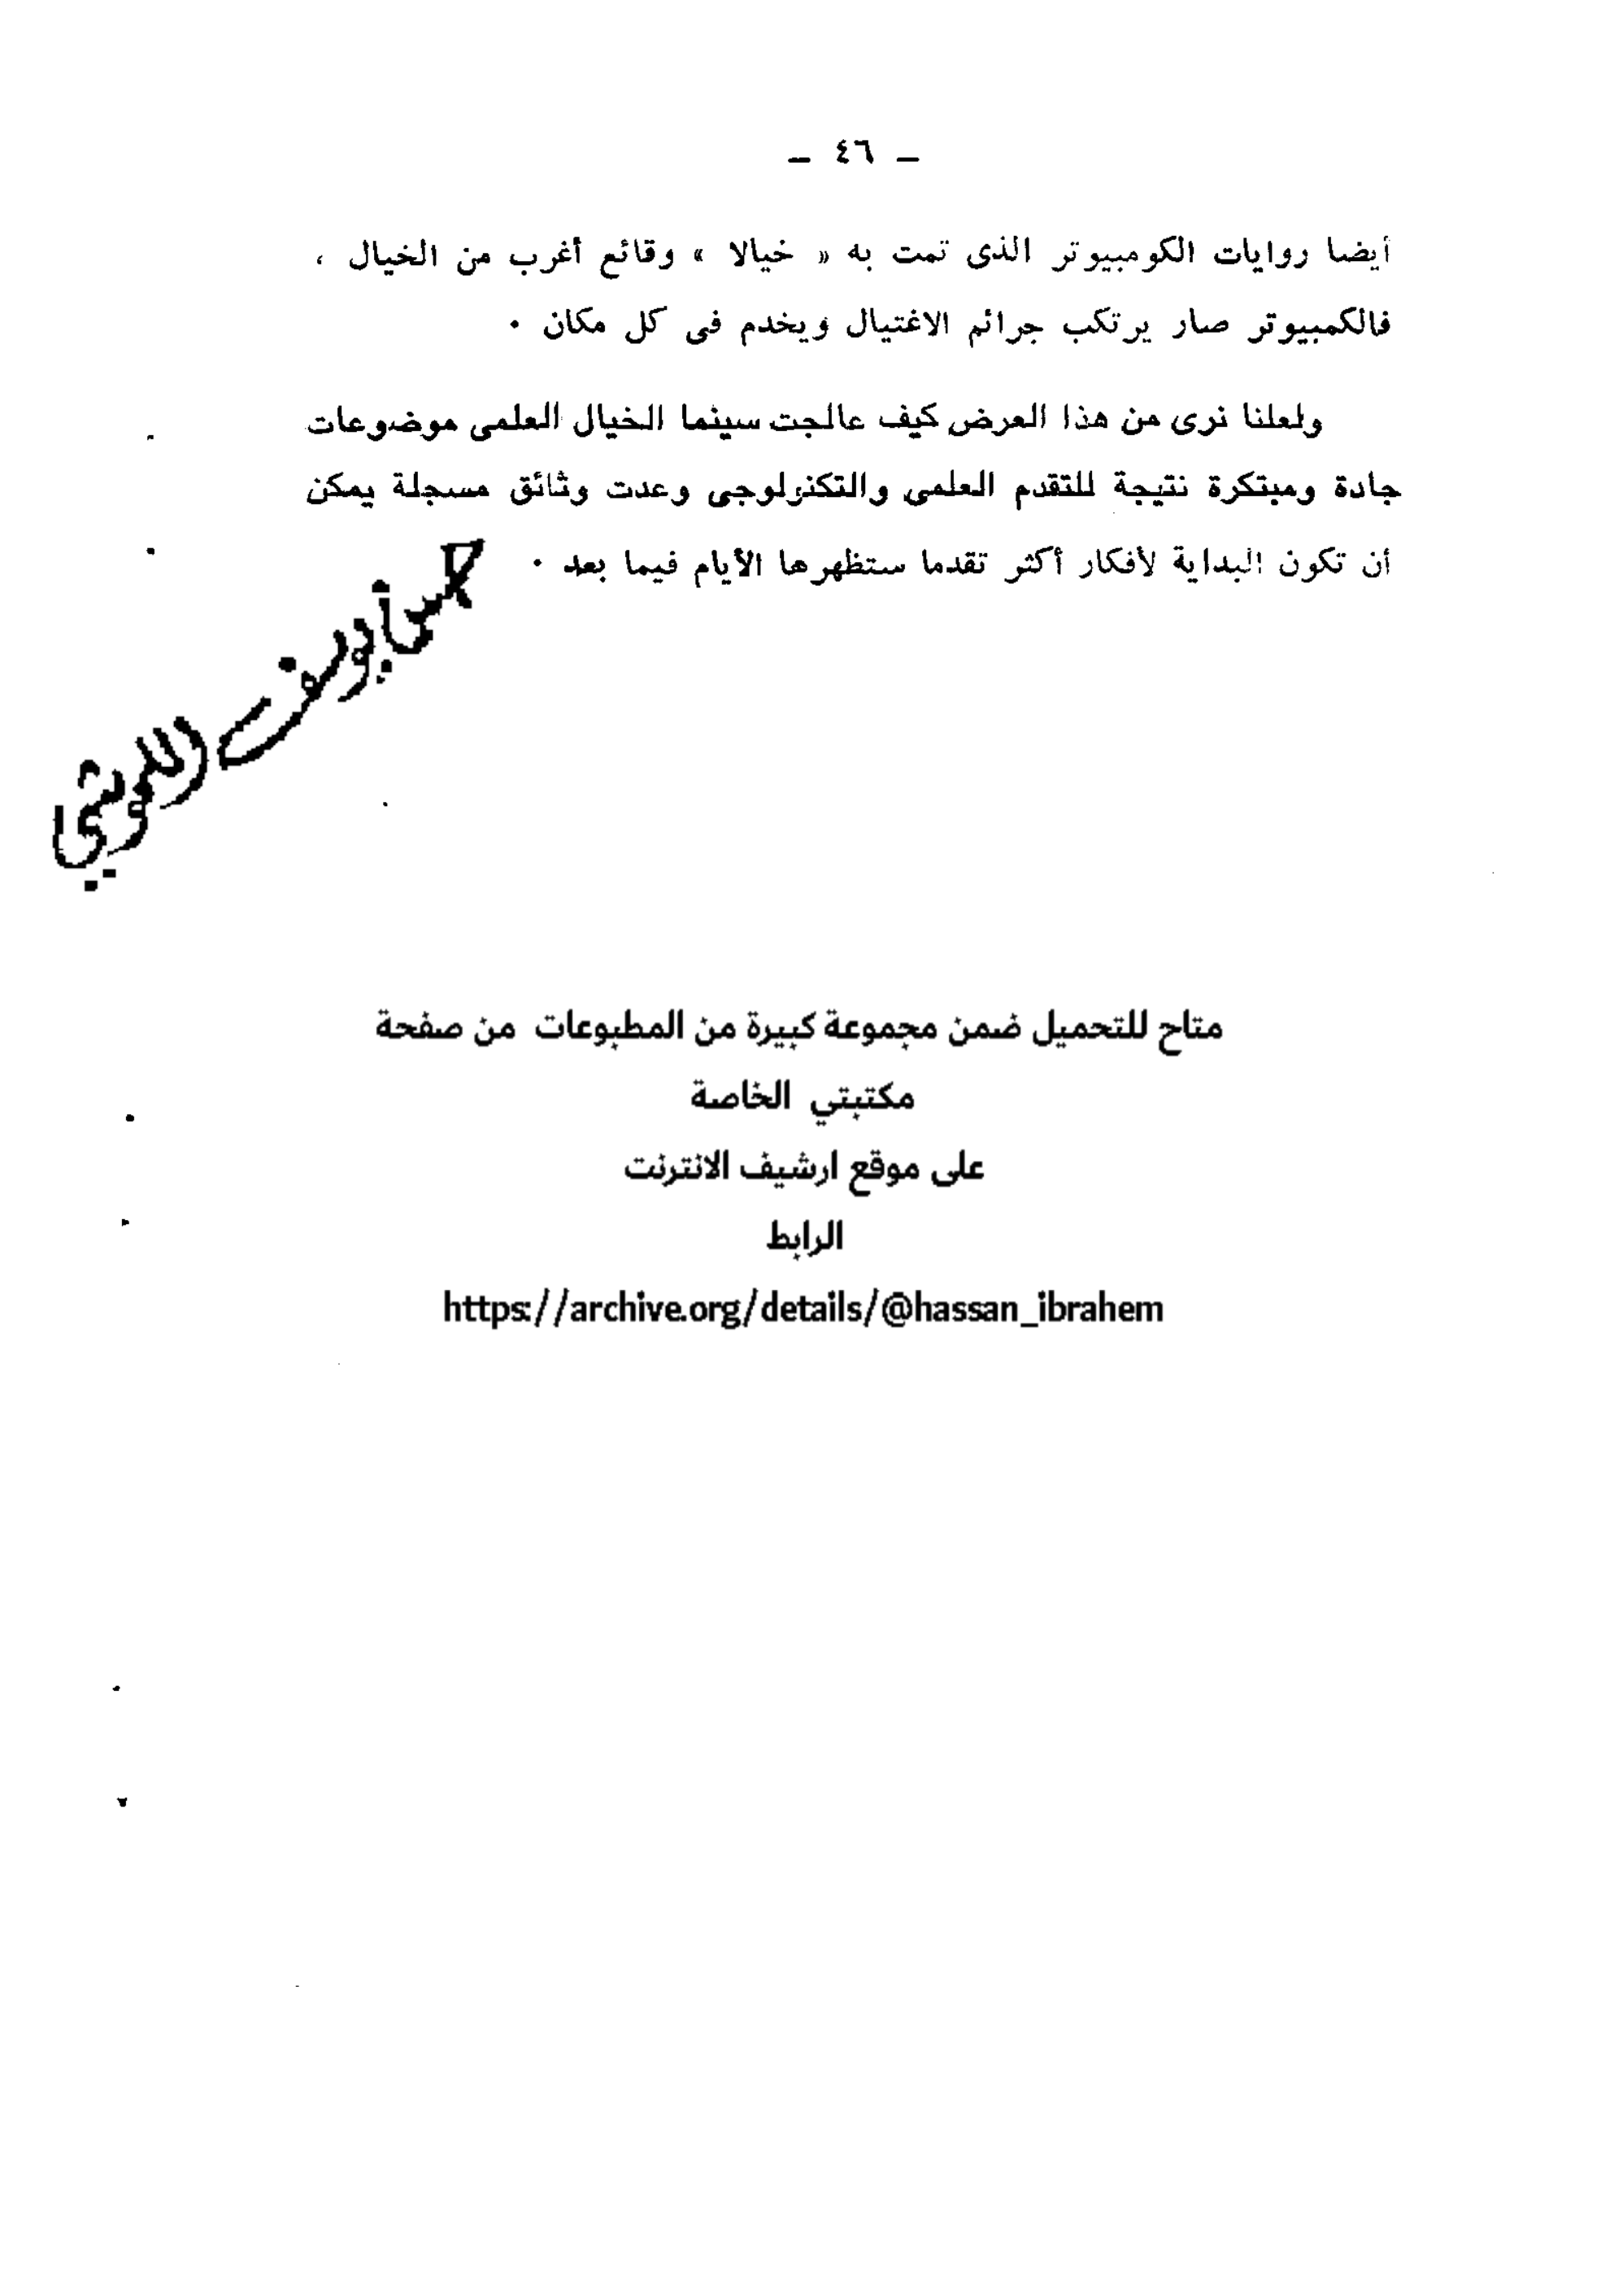 — ٤٦ —
أيضا روايات الكومبيوتر الذى تمت به « خيالا » وقائع أغرب من الخيال ،
فالكمبيوتر صار يرتكب جرائم الاغتيال ويخدم فى كل مكان ٠
ولعلنا نرى من هذا العرض كيف عالجت سينما الخيال العلمى موضوعات
جادة ومبتكرة نتيجة للتقدم العلمى والتكنولوجى وعدت وثائق مسجلة يمكن
أن تكون البداية لأفكار أكثر تقدما ستظهرها الأيام فيما بعد ٠
متاح للتحميل ضمن مجموعة كبيرة من المطبوعات من صفحة
مكتبتي الخاصة
على موقع ارشيف الانترنت
الرابط
https://archive.org/details/@hassan_ibrahem